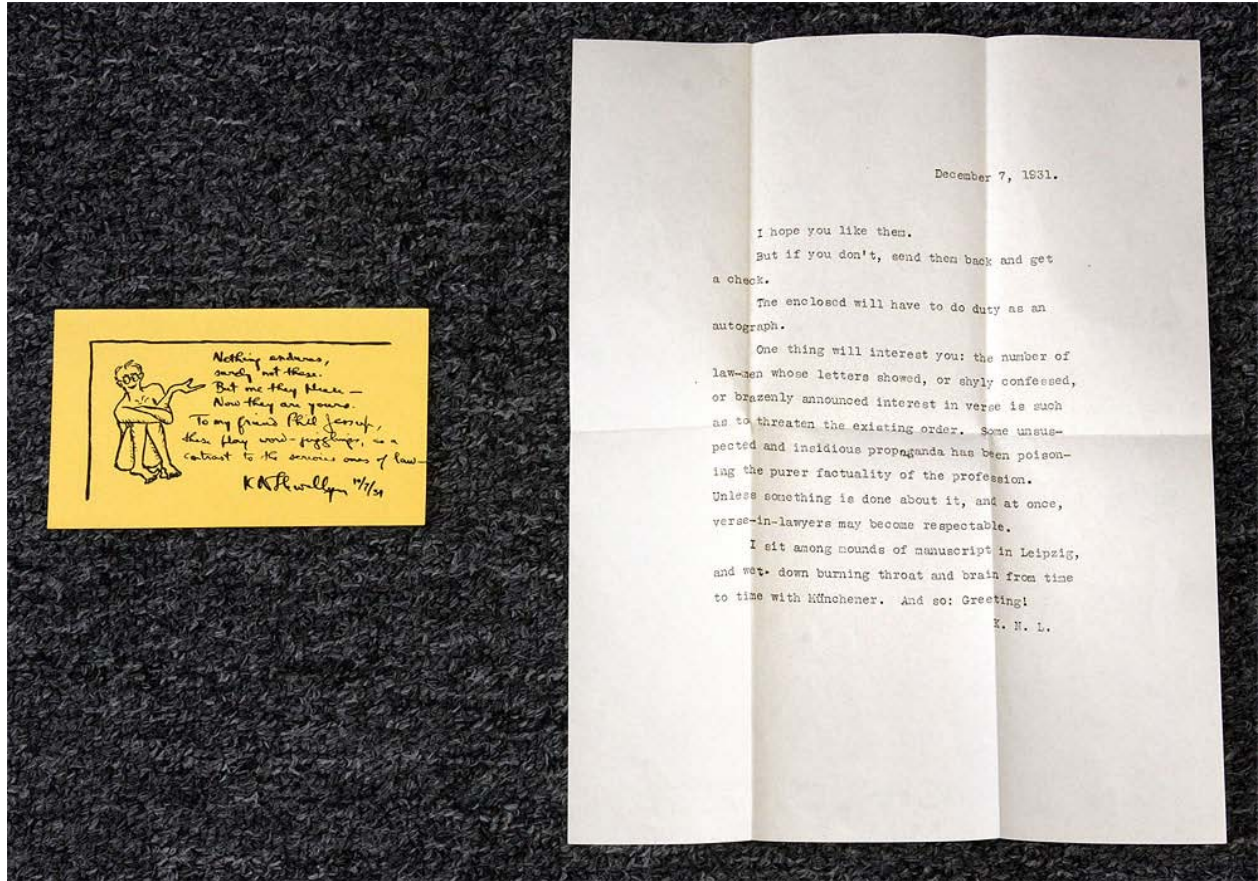 Nothing endures,
surely not these.
But me they please —
Now they are yours.
To my friend Phil Jessup,
these play word-jugglings, as a
contrast to the serious ones of law —
K N Llewellyn
December 7, 1931.
I hope you like them.
But if you don't, send them back and get
a check.
The enclosed will have to do duty as an
autograph.
One thing will interest you: the number of
law-men whose letters showed, or shyly confessed,
or brazenly announced interest in verse is such
as to threaten the existing order. Some unsus-
pected and insidious propaganda has been poison-
ing the purer factuality of the profession.
Unless something is done about it, and at once,
verse-in-lawyers may become respectable.
I sit among mounds of manuscript in Leipzig,
and wet down burning throat and brain from time
to time with Münchener. And so: Greeting!
K. N. L.